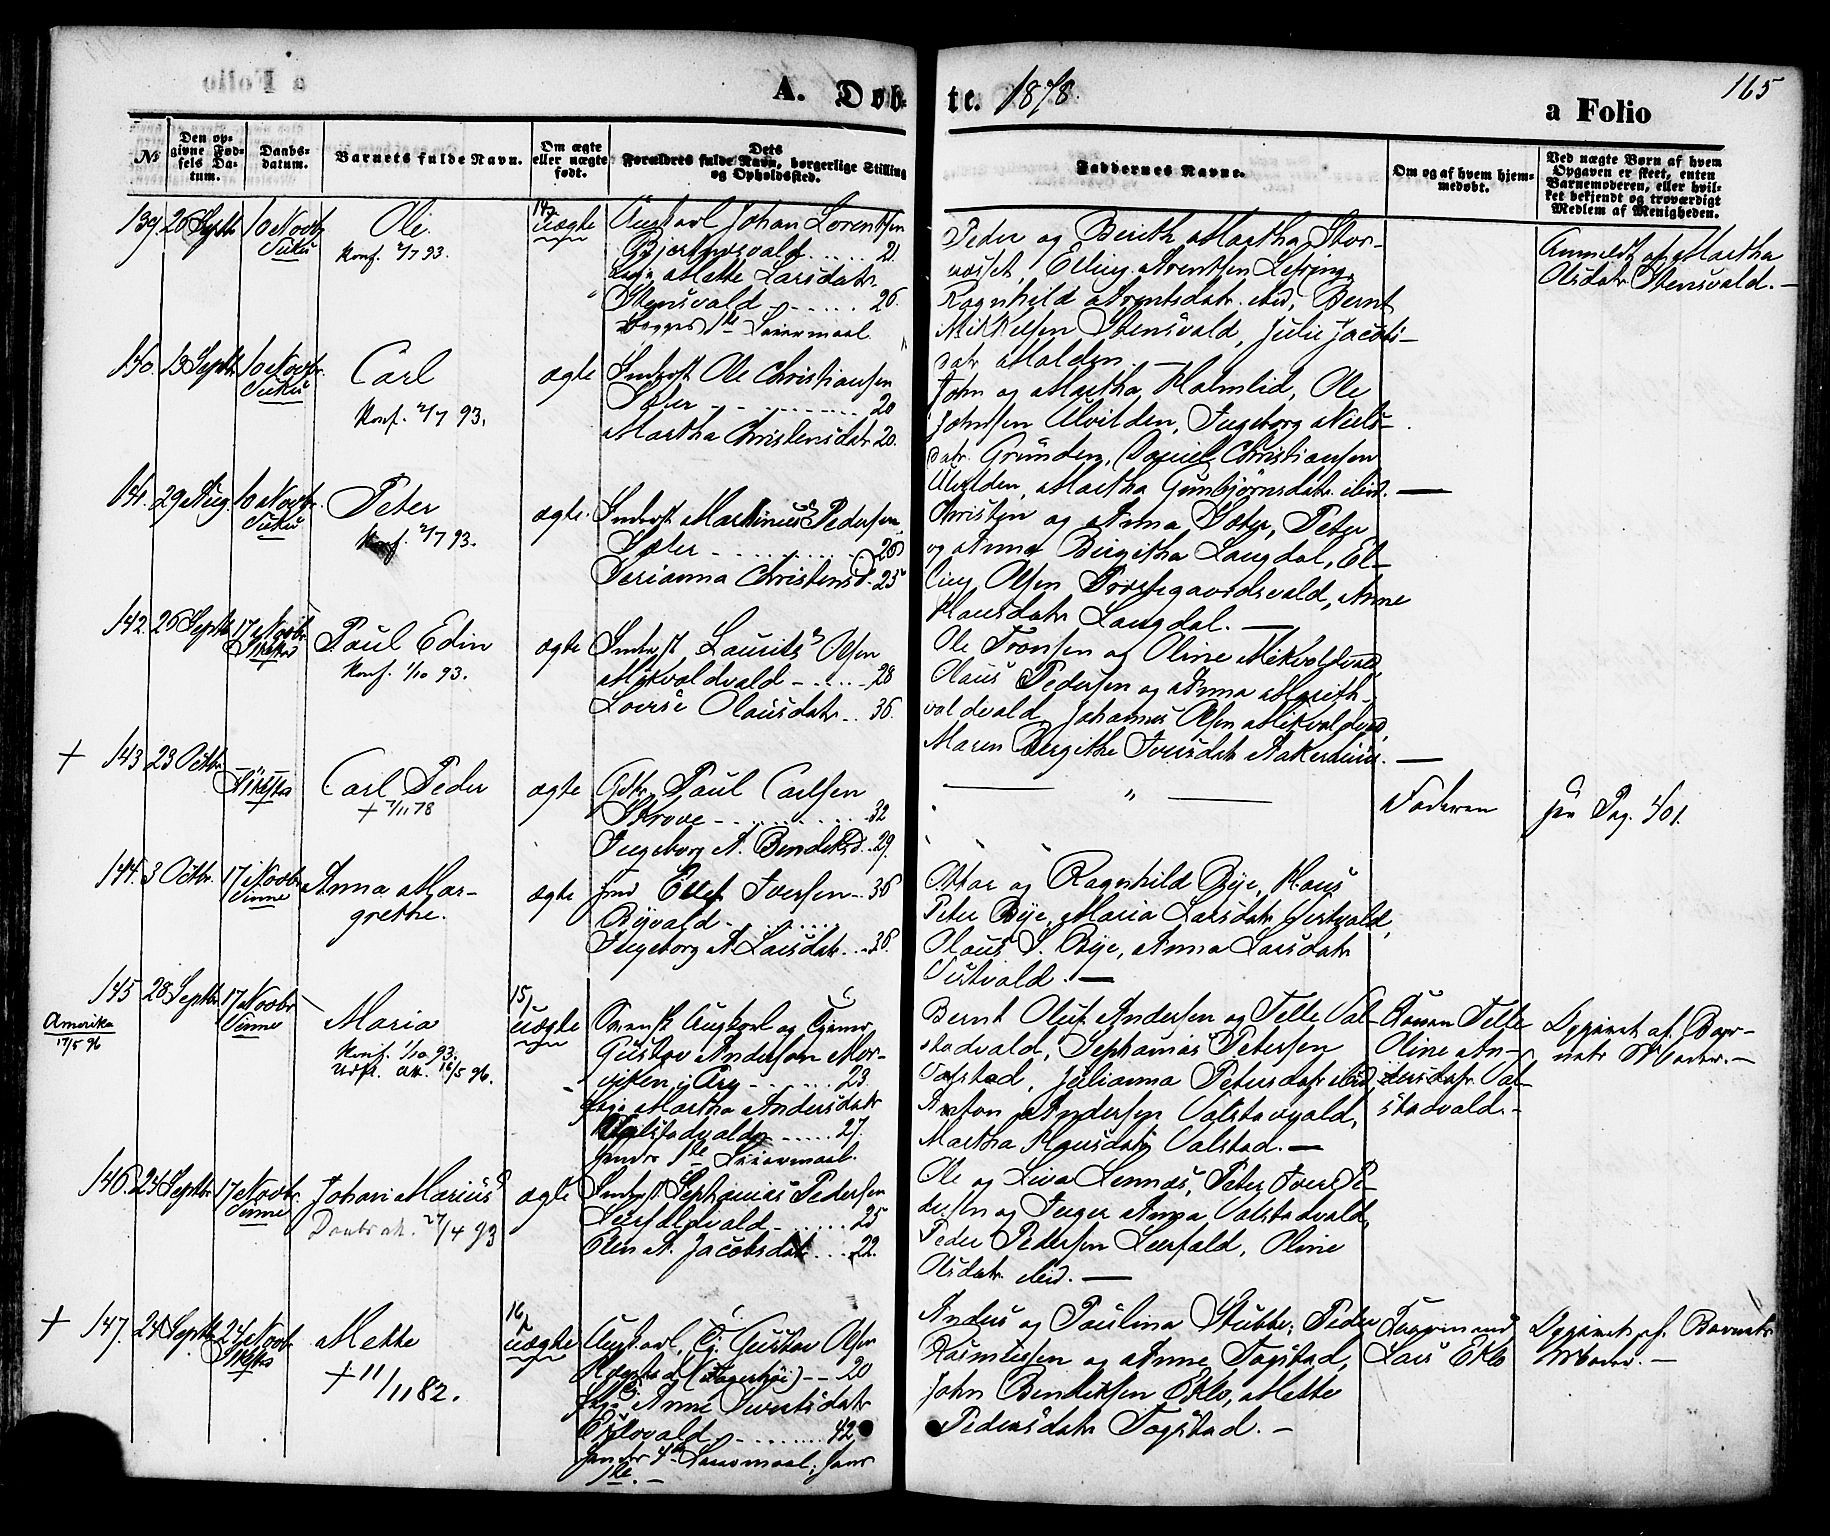 A. Døb-
te. 1878.
165
a Folio
No
Den op-
givne Fød-
sels Da-
tum.
Daabs-
datum.
Barnets fulde Navn.
Om ægte
eller uægte
født.
Dets
Forældres fulde Navn, borgerlige Stilling
og Opholdssted.
Faddernes Navne.
Om og af hvem hjem-
medøbt.
Ved uægte Børn af hvem
Opgaven er skeet, enten
Barnemoderen, eller hvil-
ket bekjendt og troværdigt
Medlem af Menigheden.
139. 20 Septbr 10 Novbr
Ole.
Konf. 2/7 93.
14/
uægte
Ungkarl Johan Lorentsen
21.
Pige Mette Larsdatr.
Stensvald 26.
Begges 1ste Leiermaal.
Peder og Bereth Martha Stor-
Elling Arentsen
Ragnhild Arntsdatr. ibid, Bernt
Mikkelsen Stensvald, Julie Jacobs-
datr.
Anmeldt af Martha
Olsdatr Stensvald.
140. 13 Septbr 10 Novbr.
Carl
Konf. 2/7 93.
ægte
Inderst Ole Christiansen
Sæter 20
Martha Christensdatr 20.
John og Martha Holmlid, Ole
Johnsen Ulvilden, Ingeborg Niels-
datr. Gründen, Daniel Christiansen
Ulvilden, Martha Gunbjørnsdatr. ibid.
141. 29 Aug 10 Novbr.
Peter
Konf. 2/7 93.
ægte.
Inderst Martinus Pedersen
Sæter 26
Serianna Christensd. 25
Christen og Anna Sæter, Peter
og Anna Birgitha Langdal, El-
ling Olsen Prestegaardsvald, Anne
Hansdatr Langdal.
142. 26 Septbr 17 Novbr
Paul Edin
Konf. 1/10 93.
ægte
Inderst Laurits Olsen
Mikvoldvald 28
Lovise Olausdatr. 36.
Ole Tronsen og Oline Mikvoldvald,
Olaus Pedersen og Anna
Johannes Olsen Mikvoldvald,
Maren Bergithe Iversdatr
+ 143 23 Octbr
Carl Peder
+ 7/11 78
ægte
Gdbr. Paul Carlsen
Skrove 32
Ingeborg A. Bendiksd. 29.
"
Faderen
Jvn Pag. 401.
144. 3 Octbr. 17 Novbr
Vinne
Anna Mar-
grethe.
ægte
Ind Ellef Iversen 36
Byvald
Ingeborg A Larsdatr. 36.
Ottar og Ragnhild Bye, Hans
Peter Bye, Maria Larsdatr Vestvald,
Olaus S. Bye, Anna Larsdatr
Vestvald.
145 28 Septbr 17 Novbr
Vinne
Amerika
17/5 96
Maria
Konf. 1/10 93.
Udfl. att. 16/5 96.
15/
uægte
Svensk Ungkarl og
Gustav Andersen Mor-
23.
Pige Martha Andersdatr
Valstadvald 27.
1ste Leiermaal.
Bernt Oluf Andersen og Telle Val-
stadvald, Sephanias Petersen
Valstad, Julianna Petersdatr ibid,
Anton Andersen Valstadvald,
Martha Hansdatr Valstad.
Konen Telle
Oline An-
dersdatr. Val-
stadvald.
Opgivet af Bar-
nets Moder.
146. 24 Septbr 17 Novbr.
Vinne
Johan Marius
Daabsatt. 27/4 93
ægte
Inderst Sephanias Pedersen
Leirfaldvald 25
Elen A. Jacobsdatr. 22.
Ole og Liva Lennæs, Peter Iver Pe-
dersen og Inger Anna Valstadvald,
Peder Pedersen Leerfald, Oline
Olsdatr. ibid.
+ 147. 24 Septbr 24 Novbr
Mette
+ 11/11 82.
16/
uægte
Ungkarl, Gustav Olsen
20
Pige Anne Sivertsdatr
Eklovald 42
4de Leiermaal, hans
1ste.
Anders og Paulina Stubbe, Peder
Rasmussen og Anne Togstad,
John Bendiksen Eklo, Mette
Pedersdatr Togstad.
Lars Eklo
Opgivet af Barnets
Moder.